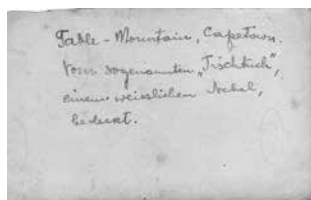 Table - Mountain, Capetown.
Vom sogenannten „Tischtuch",
einem weisslichen Nebel,
bedeckt.